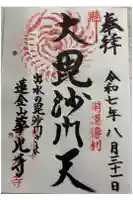 奉拝
令和七年八月三十一日
開運勝利
大毘沙門天
出水の毘沙門さま
蓮金山華光寺